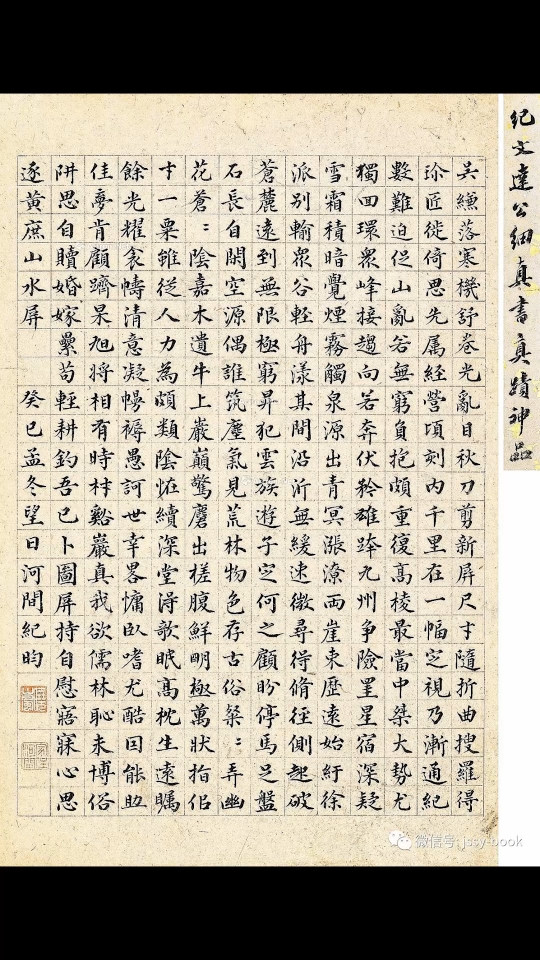 紀文達公細真書真蹟神品
吳縑落寒機舒卷光亂目秋刀剪新屏尺寸隨折曲搜羅得
珎匠徙倚思先属經營頃刻内千里在一幅定視乃漸通紀
數難迫促山亂若無窮負抱頗重復高棱最當中桀大勢尤
獨回環衆峰接趨向若奔伏矜雄跨九州争險罣星宿深疑
雪霜積暗覺煙霧觸泉源出青冥漲潦兩崖束歴遠始紆徐
派别輸衆谷輕舟漾其間沿泝無緩速微尋得脩徑側起破
蒼麓遠到無限極窮昇犯雲族遊子定何之顧盼停馬足盤
石長自閑空源偶誰筑塵氣見荒林物色存古俗粲〻弄幽
花蒼〻陰嘉木遺牛上巖巔驚麏出槎腹鮮明極萬狀指佀
寸一粟雖從人力為頗類陰恠續深堂淂歌眠高枕生遠矚
餘光耀衾幬清意凝幔褥愚訶世幸畧慵臥嗜尤酷因能助
佳夢肯顧躋杲旭將相有時材谿巖真我欲儒林恥未博俗
阱思自贖婚嫁纍苟輕耕釣吾已卜圖屏持自慰寤寐心思
逐黃庶山水屏　癸巳孟冬望日河間紀昀
微信号: jssy-book